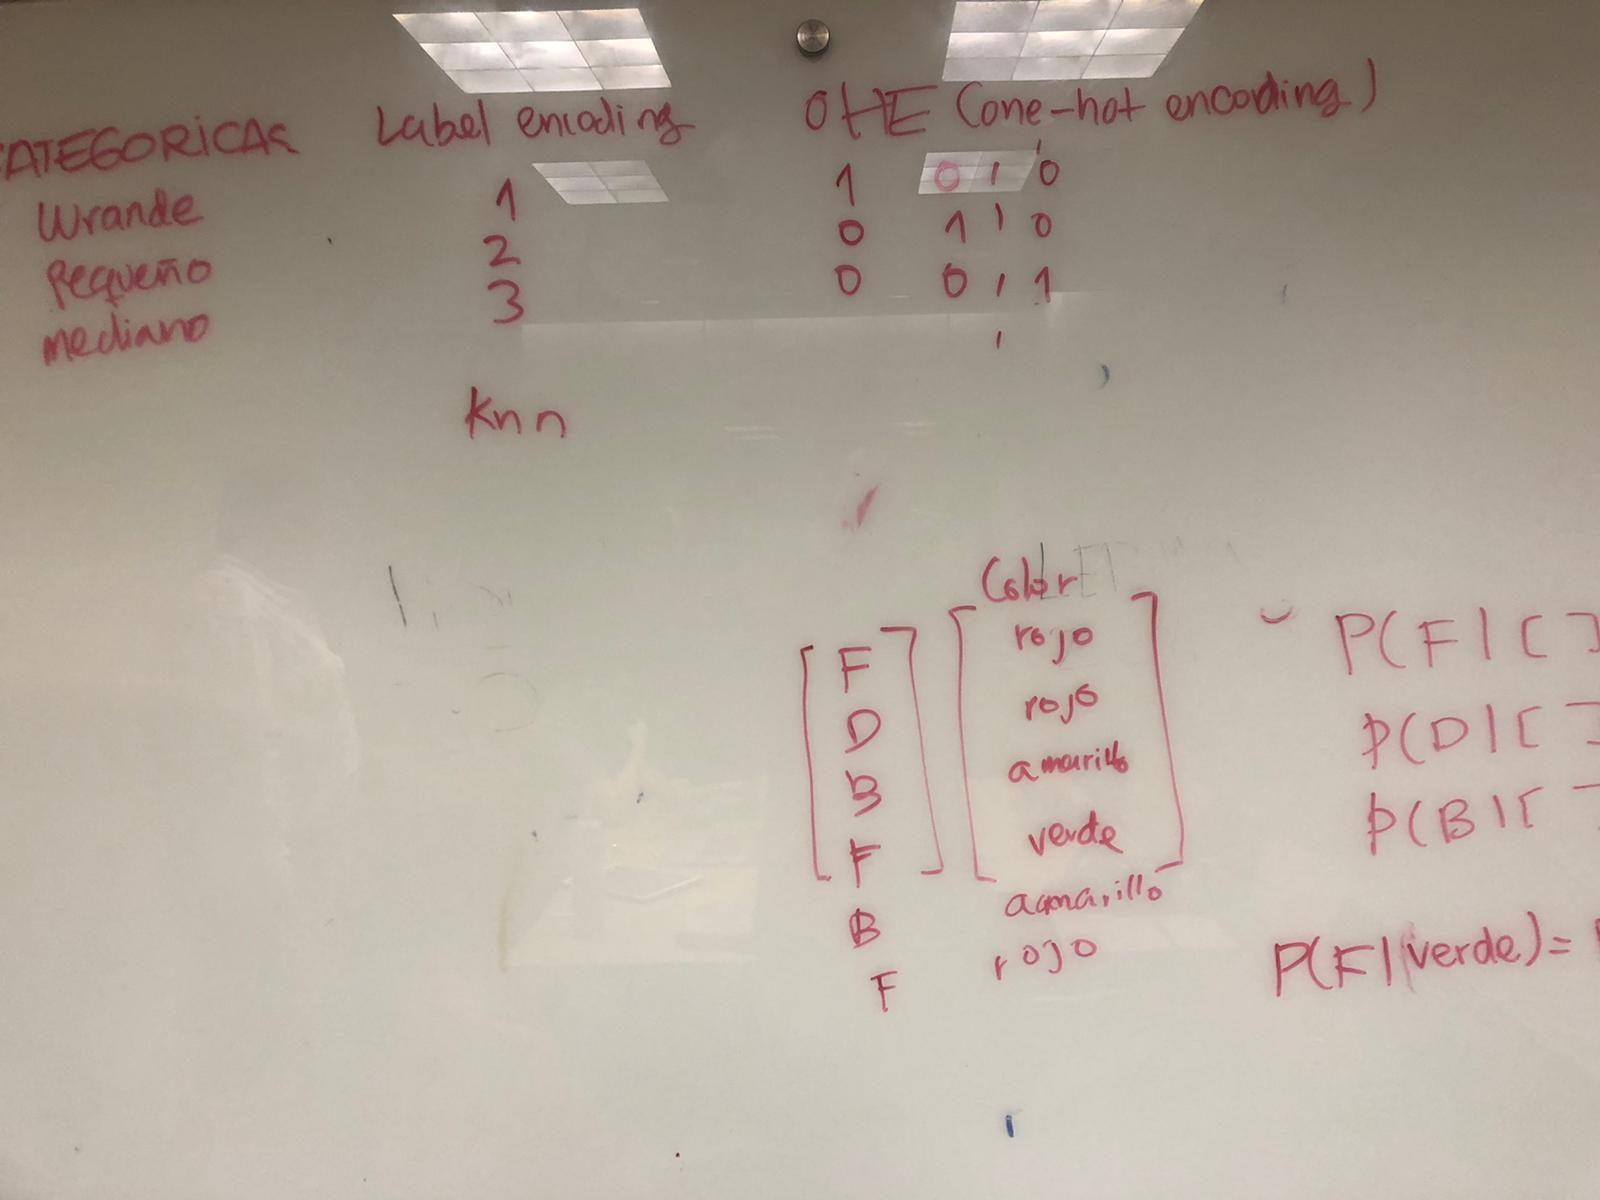 CATEGORICAS Label encoding OHE (one-hot encoding)
Grande 1 1 0 0
Pequeño 2 0 1 0
mediano 3 0 0 1
Knn
Color
F rojo P(F|[ ]
D rojo P(D|[ ]
B amarillo P(B|[ ]
F verde
B amarillo
F rojo P(F|verde)=